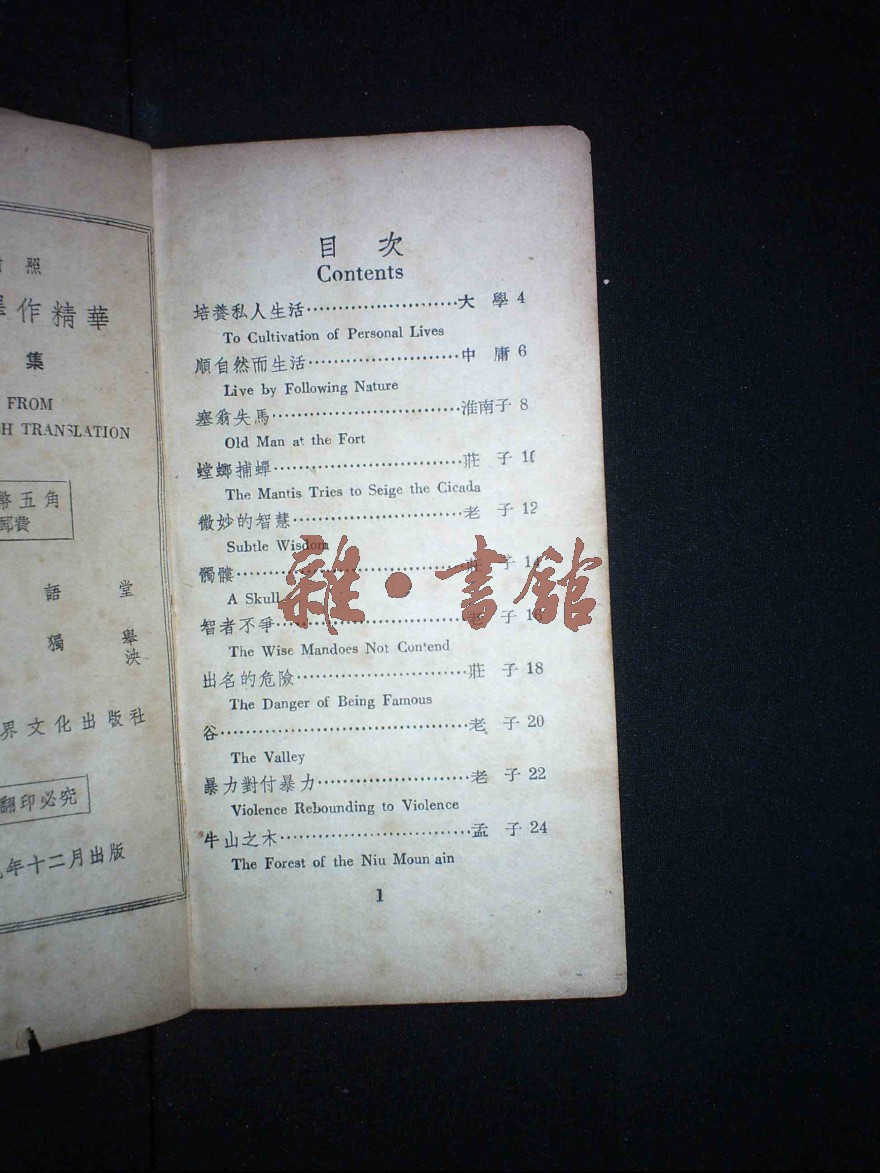 照
作精華
集
FROM
TRANSLATION
幣五角
郵費
語堂
獨舉
泱
界文化出版社
翻印必究
年十二月出版
目次
Contents
培養私人生活……………………大學 4
To Cultivation of Personal Lives
順自然而生活……………………中庸 6
Live by Following Nature
塞翁失馬……………………淮南子 8
Old Man at the Fort
螳螂捕蟬……………………莊子 10
The Mantis Tries to Seige the Cicada
微妙的智慧……………………老子 12
Subtle Wisdom
髑髏……………………莊子 14
A Skull
智者不爭……………………老子 16
The Wise Mandoes Not Contend
出名的危險……………………莊子 18
The Danger of Being Famous
谷……………………老子 20
The Valley
暴力對付暴力……………………老子 22
Violence Rebounding to Violence
牛山之木……………………孟子 24
The Forest of the Niu Moun ain
1
雜·書館